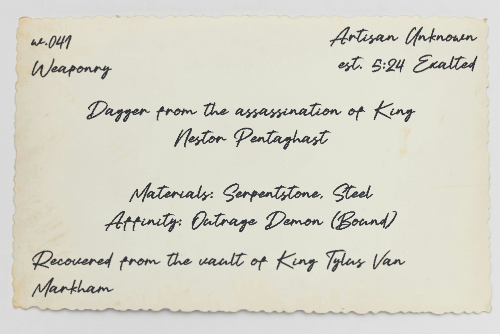 w.041
Artisan Unknown
Weaponry
est. 5:24 Exalted
Dagger from the assassination of King
Nestor Pentaghast
Materials: Serpentstone, Steel
Affinity: Outrage Demon (Bound)
Recovered from the vault of King Tylus Van
Markham